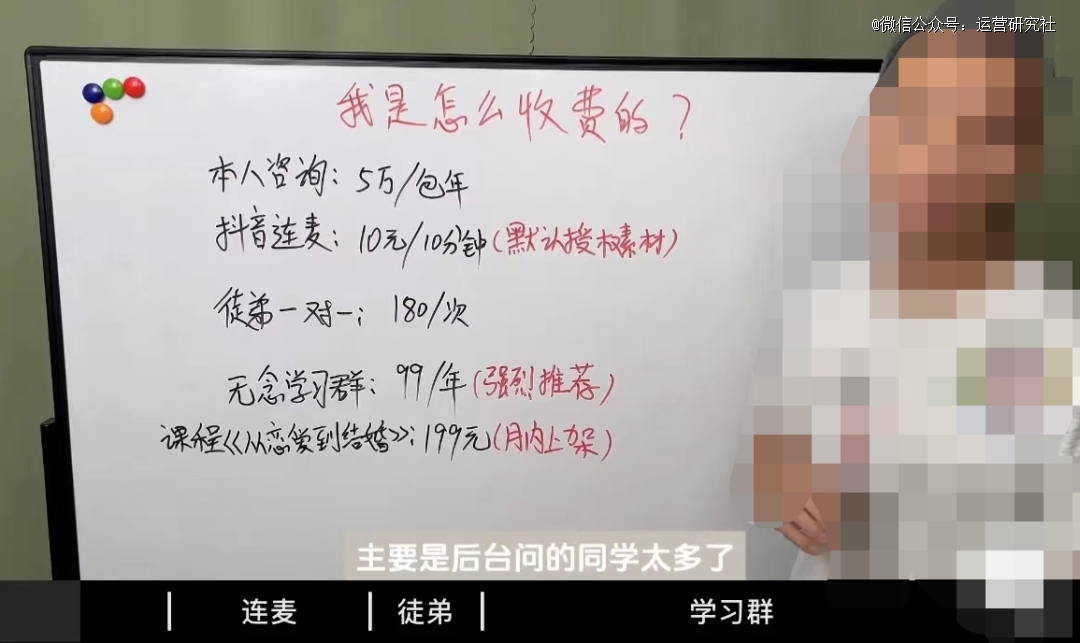 @微信公众号：运营研究社
我是怎么收费的？
本人咨询：5万/包年
抖音连麦：10元/10分钟（默认授权素材）
徒弟一对一：180/次
无念学习群：99/年（强烈推荐）
课程《从恋爱到结婚》：199元（月内上架）
主要是后台问的同学太多了
连麦
徒弟
学习群